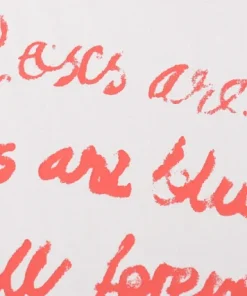 Roses are
s are blu
ll forem